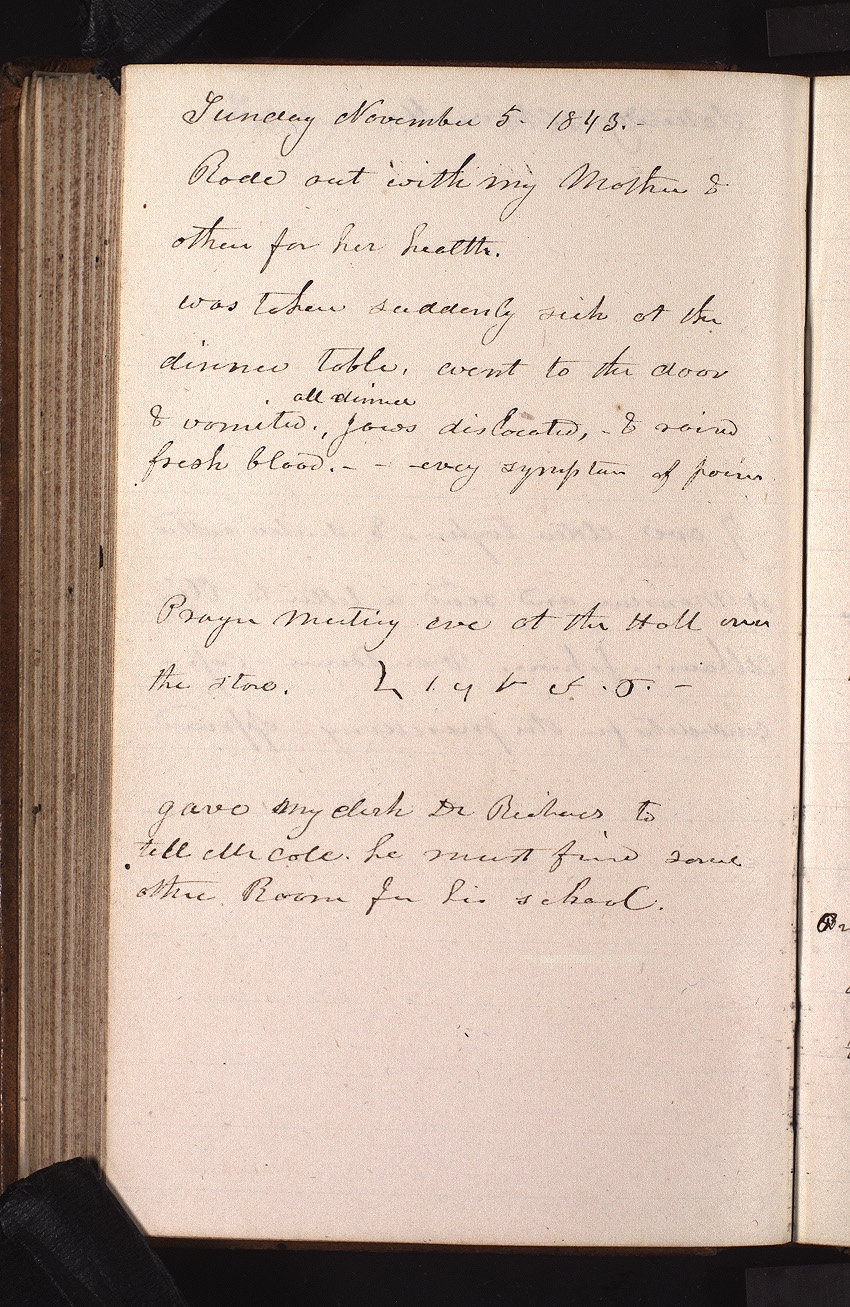 Sunday November 5. 1843.-
Rode out with my Mother &
others for her health.
was taken suddenly sick at the
dinner table. went to the door
all dinner
& vomited., Jaws dislocated, - & raised
fresh blood. - - every symptom of poison
Prayer Meeting eve at the Hall over
the store.
gave my clerk Dr Richards to
tell Mr cole. he must find some
other Room for his school.